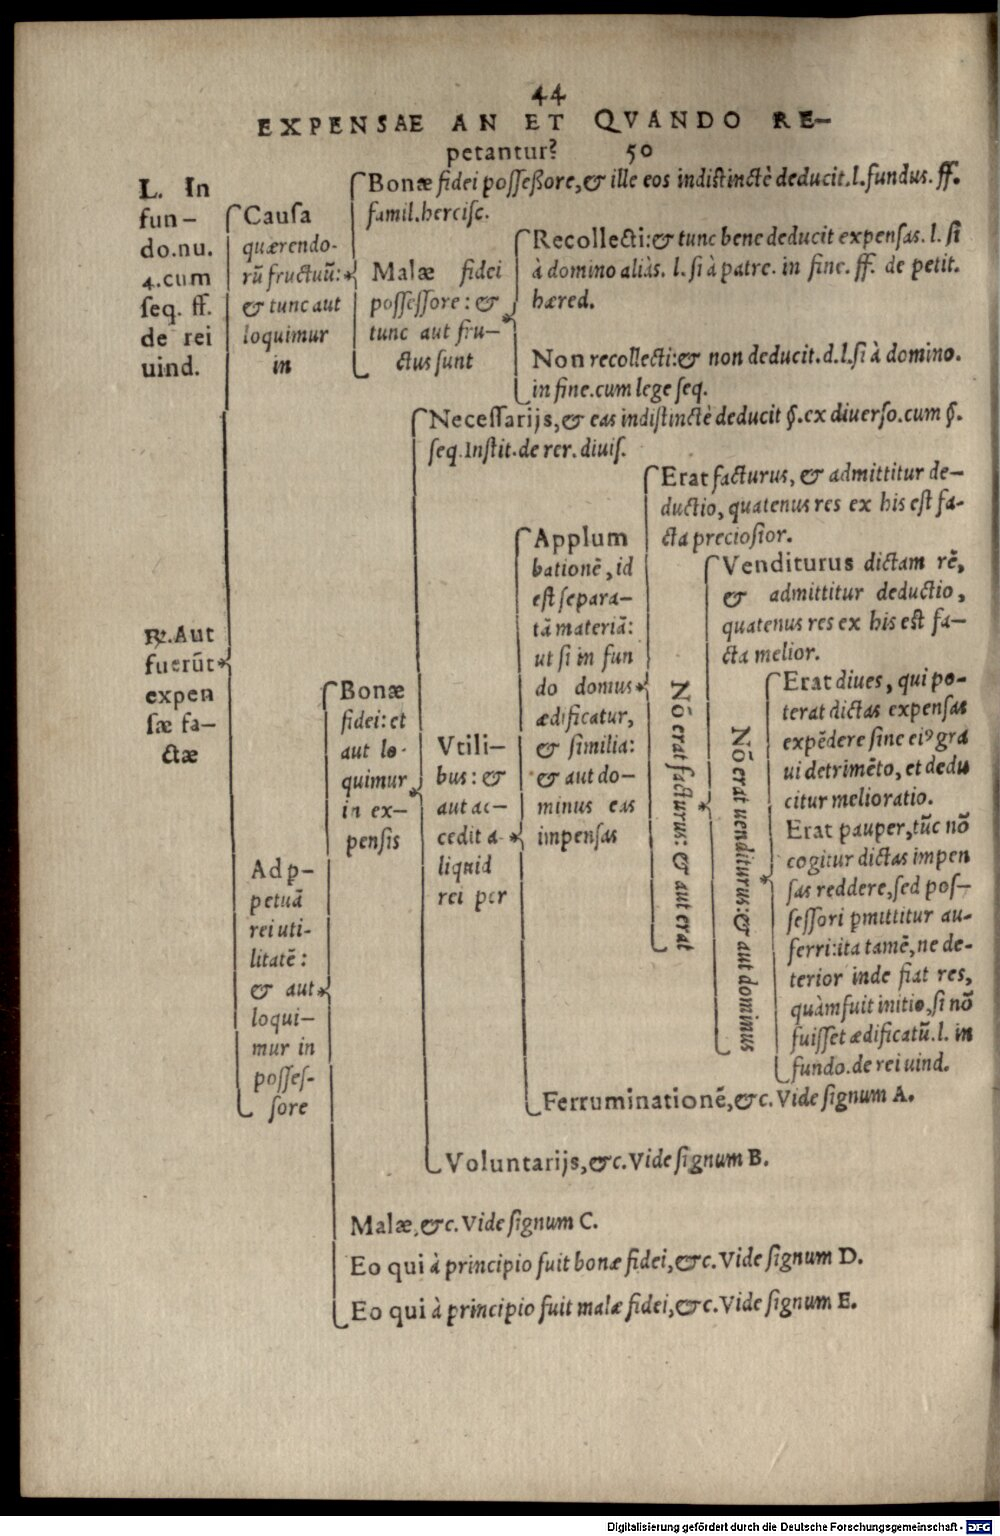 44
EXPENSAE AN ET QVANDO RE-
petantur? 50
L. In
fun-
do.nu.
4.cum
seq. ff.
de rei
uind.
Causa
quærendo-
rũ fructuũ:
& tunc aut
loquimur
in
Bonæ fidei possessore,& ille eos indistinctè deducit.l.fundus. ff.
famil.hercisc.
Malæ fidei
possessore: &
tunc aut fru-
ctus sunt
Recollecti:& tunc bene deducit expensas. l. si
à domino aliàs. l. si à patre. in fine. ff. de petit.
hæred.
Non recollecti:& non deducit.d.l.si à domino.
in fine.cum lege seq.
R.Aut
fuerũt
expen
sæ fa-
ctæ
Ad p-
petuã
rei uti-
litatẽ:
& aut
loqui-
mur in
posses-
sore
Bonæ
fidei: et
aut lo-
quimur
in ex-
pensis
Necessarijs,& eas indistinctè deducit §.ex diuerso.cum §.
seq.Instit.de rer. diuis.
Vtili-
bus: &
aut ac-
cedit a-
liquid
rei per
Applum
bationẽ, id
est separa-
tã materiã:
ut si in fun
do domus
ædificatur,
& similia:
& aut do-
minus eas
impensas
Erat facturus, & admittitur de-
ductio, quatenus res ex his est fa-
cta preciosior.
Nõ erat facturus: & aut erat
Venditurus dictam rẽ,
& admittitur deductio,
quatenus res ex his est fa-
cta melior.
Nõ erat uenditurus:& aut dominus
Erat diues, qui po-
terat dictas expensas
expẽdere sine eiꝰ gra
ui detrimẽto, et dedu
citur melioratio.
Erat pauper, tũc nõ
cogitur dictas impen
sas reddere, sed pos-
sessori pmittitur au-
ferri:ita tamẽ, ne de-
terior inde fiat res,
quàm fuit initio, si nõ
fuisset ædificatũ.l. in
fundo.de rei uind.
Ferruminationẽ,&c. Vide signum A.
Voluntarijs,&c. Vide signum B.
Malæ,&c. Vide signum C.
Eo qui à principio fuit bonæ fidei,&c. Vide signum D.
Eo qui à principio fuit malæ fidei,&c. Vide signum E.
Digitalisierung gefördert durch die Deutsche Forschungsgemeinschaft - DFG